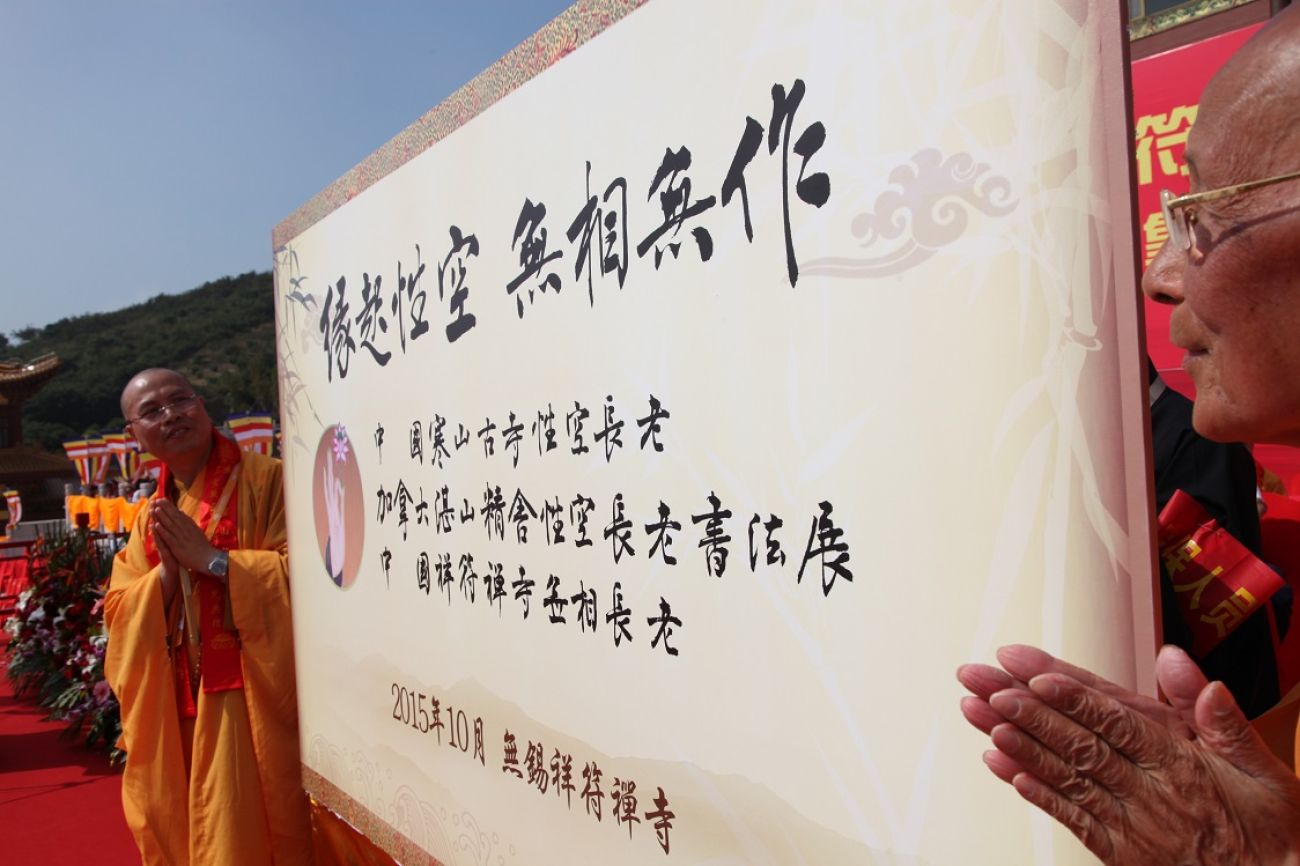 緣起性空 無相無作
中國寒山古寺性空長老
加拿大湛山精舍性空長老書法展
中國祥符禪寺無相長老
2015年10月 無錫祥符禪寺
符
人员